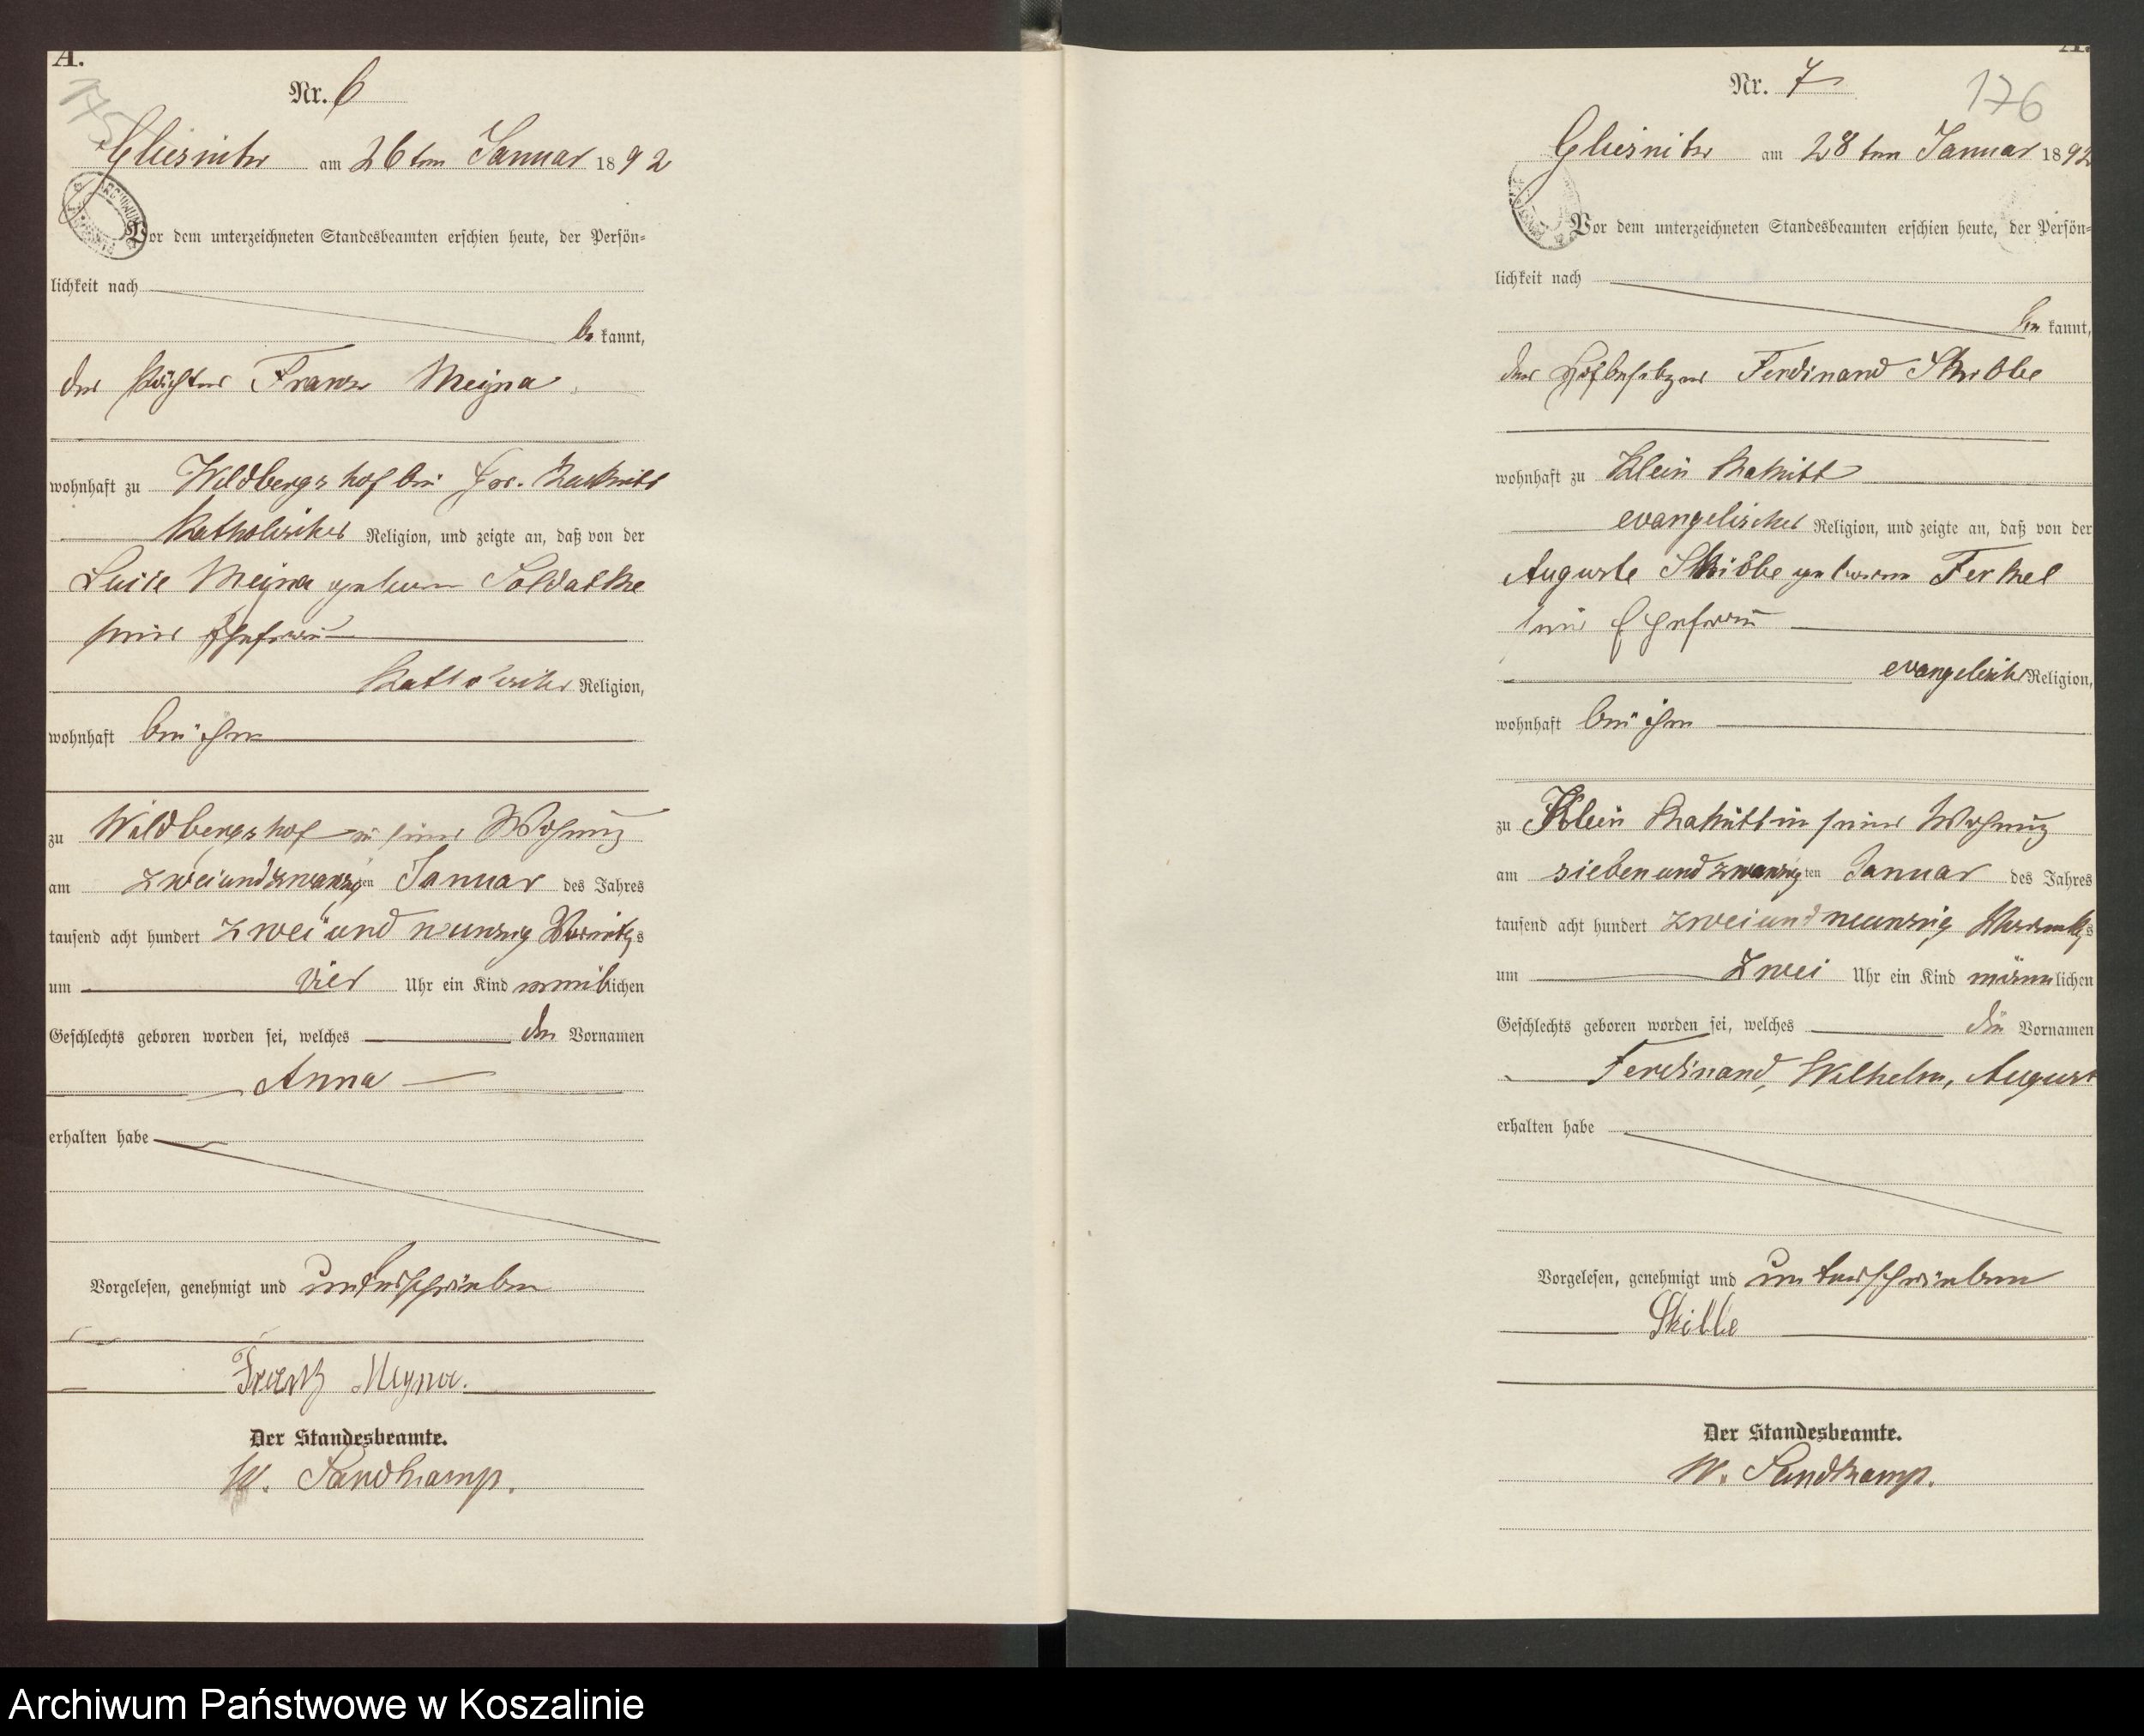 A.
175
Nr. 6
Gliesnitz am 26ten Januar 1892
Vor dem unterzeichneten Standesbeamten erschien heute, der Persön-
lichkeit nach
be kannt,
der Pächter Franz Meyna
wohnhaft zu Wildbergshof bei Gr. Rakitt
katholischer Religion, und zeigte an, daß von der
Meyna geboren Soldatke
seine Ehefrau
katholischer Religion,
wohnhaft bei ihm
zu Wildbergshof in seiner Wohnung
am zweiundzwanzigten Januar des Jahres
tausend acht hundert zweiundneunzig Vormittags
um vier Uhr ein Kind weiblichen
Geschlechts geboren worden sei, welches den Vornamen
Anna
erhalten habe
Vorgelesen, genehmigt und unterschrieben
Frantz Meyna.
Der Standesbeamte.
W. Sandkamp.
A.
Nr. 7
176
Gliesnitz am 28ten Januar 1892
Vor dem unterzeichneten Standesbeamten erschien heute, der Persön-
lichkeit nach
be kannt,
der Hofbesitzer Ferdinand Skibbe
wohnhaft zu Klein Rakitt
evangelischer Religion, und zeigte an, daß von der
Auguste Skibbe geboren Ferkel
seine Ehefrau
evangelischer Religion,
wohnhaft bei ihm
zu Klein Rakitt in seiner Wohnung
am siebenundzwanzigten Januar des Jahres
tausend acht hundert zweiundneunzig Vormittags
um zwei Uhr ein Kind männlichen
Geschlechts geboren worden sei, welches die Vornamen
Ferdinand, Wilhelm, August
erhalten habe
Vorgelesen, genehmigt und unterschrieben
Skibbe
Der Standesbeamte.
W. Sandkamp.
Archiwum Państwowe w Koszalinie